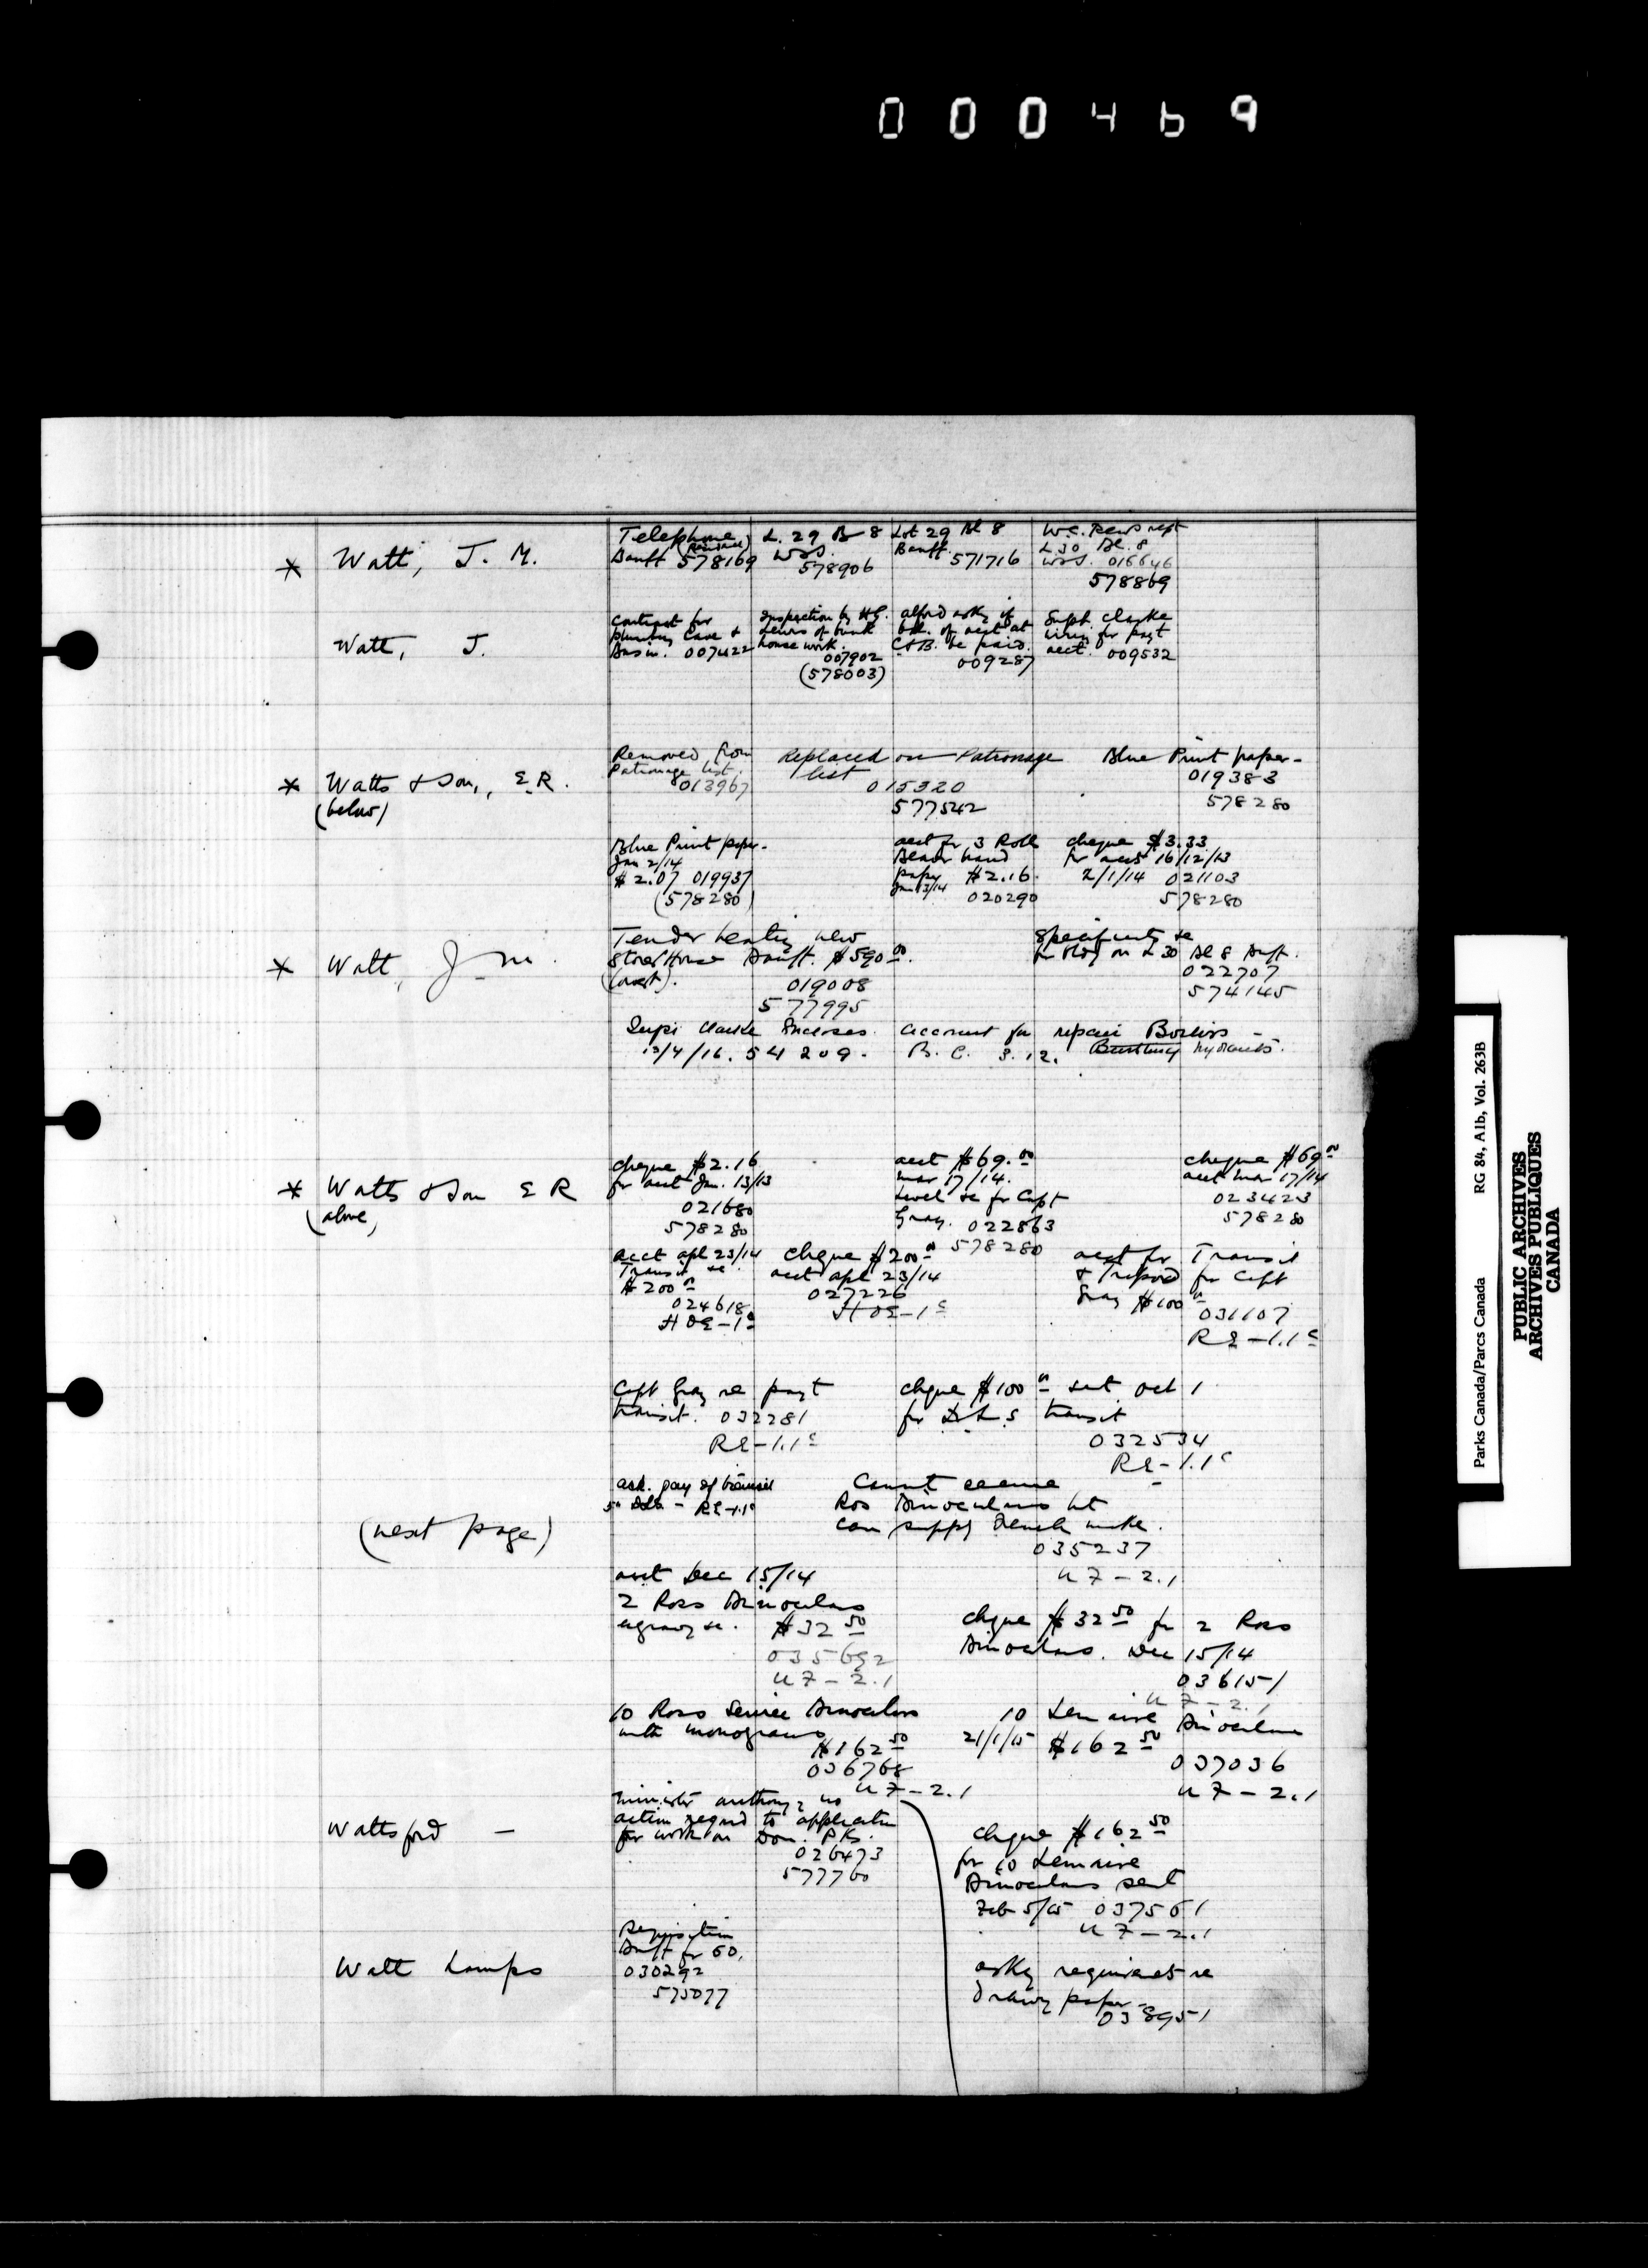 000469
* Watt, J. M.
Telephone
(Rental)
Banff 578169
L. 29 B 8
W&S.
578906
Lot 29 Bl 8
Banff.
571716
L 30 Bl. 8
W&S. 016646
578869
Watt, J.
Contract for
plumbing Cave &
Basin. 007422
Inspection by
Lewis of bunk
house work.
007902
(578003)
of acct at
C & B. be paid.
009287
Supt. Clarke
wiring for payt
acct. 009532
* Watts & Son, E. R.
(below)
Removed from
Patronage list.
013967
Replaced on Patronage
list
015320
577542
Blue Print paper -
019383
578280
Blue Print paper -
Jan 2/14
$2.07 019937
(578280)
acct for 3 Rolls
hand
paper $2.16.
Jan 13/14
020290
cheque $3.33
for acct 16/12/13
2/1/14 021103
578280
* Watt, J M.
Tender heating new
Store House Banff. $590.00.
019008
577995
for Bldg on L 30 Bl 8 Banff.
022707
574145
Supt Clarke Encloses account for repair Boilers -
13/4/16. 54209. B. C. 3.12. Bursting hydrants.
* Watts & Son E R
(above)
cheque $2.16
for acct Jan. 13/13
021680
578280
acct $69.00
Mar 17/14.
Level &c for Capt
Gray. 022863
578280
cheque $69.00
acct Mar 17/14
023423
578280
Acct apl 23/14
Transit &c
$200.00
024618
HOE-1c
cheque $200.00
acct apl 23/14
027226
HOE-1c
acct for Transit
& Tripod for Capt
Gray $100.00
031107
RE-1.1c
Capt Gray re payt
transit. 032281
RE-1.1c
cheque $100.00 acct Oct 1
for D L S transit
032534
RE-1.1c
(next page)
ask. pay of transit
RE-1.1c
Cannot secure
Ross Binoculars but
can supply French make.
035237
U7-2.1
acct Dec 15/14
2 Ross Binoculars
engraving &c. $32.50
035692
U7-2.1
cheque $32.50 for 2 Ross
Binoculars. Dec 15/14
036151
U7-2.1
10 Ross Service Binoculars
with monograms
$162.50
036768
U7-2.1
10 Lemaire Binoculars
21/1/15 $162.50
037036
U7-2.1
Wattsford -
Minister no
action regard to application
for work on Dom. Pks.
026473
577760
cheque $162.50
for 10 Lemaire
Binoculars sent
Feb 5/15 037561
U7-2.1
Watt Lamps
Requisition
Banff for 60.
030292
575077
asking requirements re
Drawing paper -
038951
Parks Canada/Parcs Canada RG 84, Alb, Vol. 263B
PUBLIC ARCHIVES
ARCHIVES PUBLIQUES
CANADA